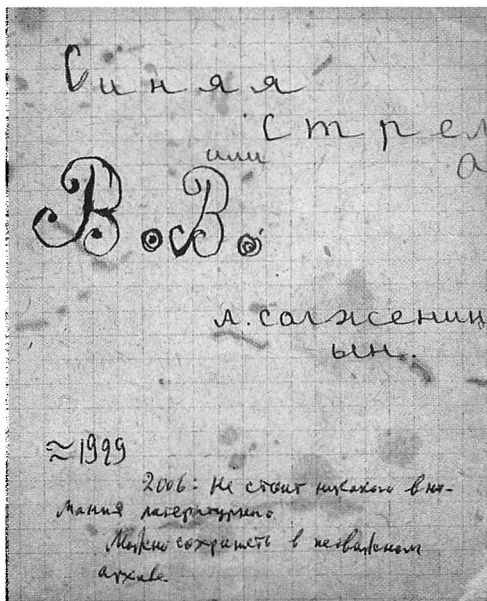 Синяя
Стрел
а
или
В.В.
А. солжениц
ын.
≈1929
2006: Не стоит никакого вни-
мания литературно
Можно сохранить в неважном
архиве.